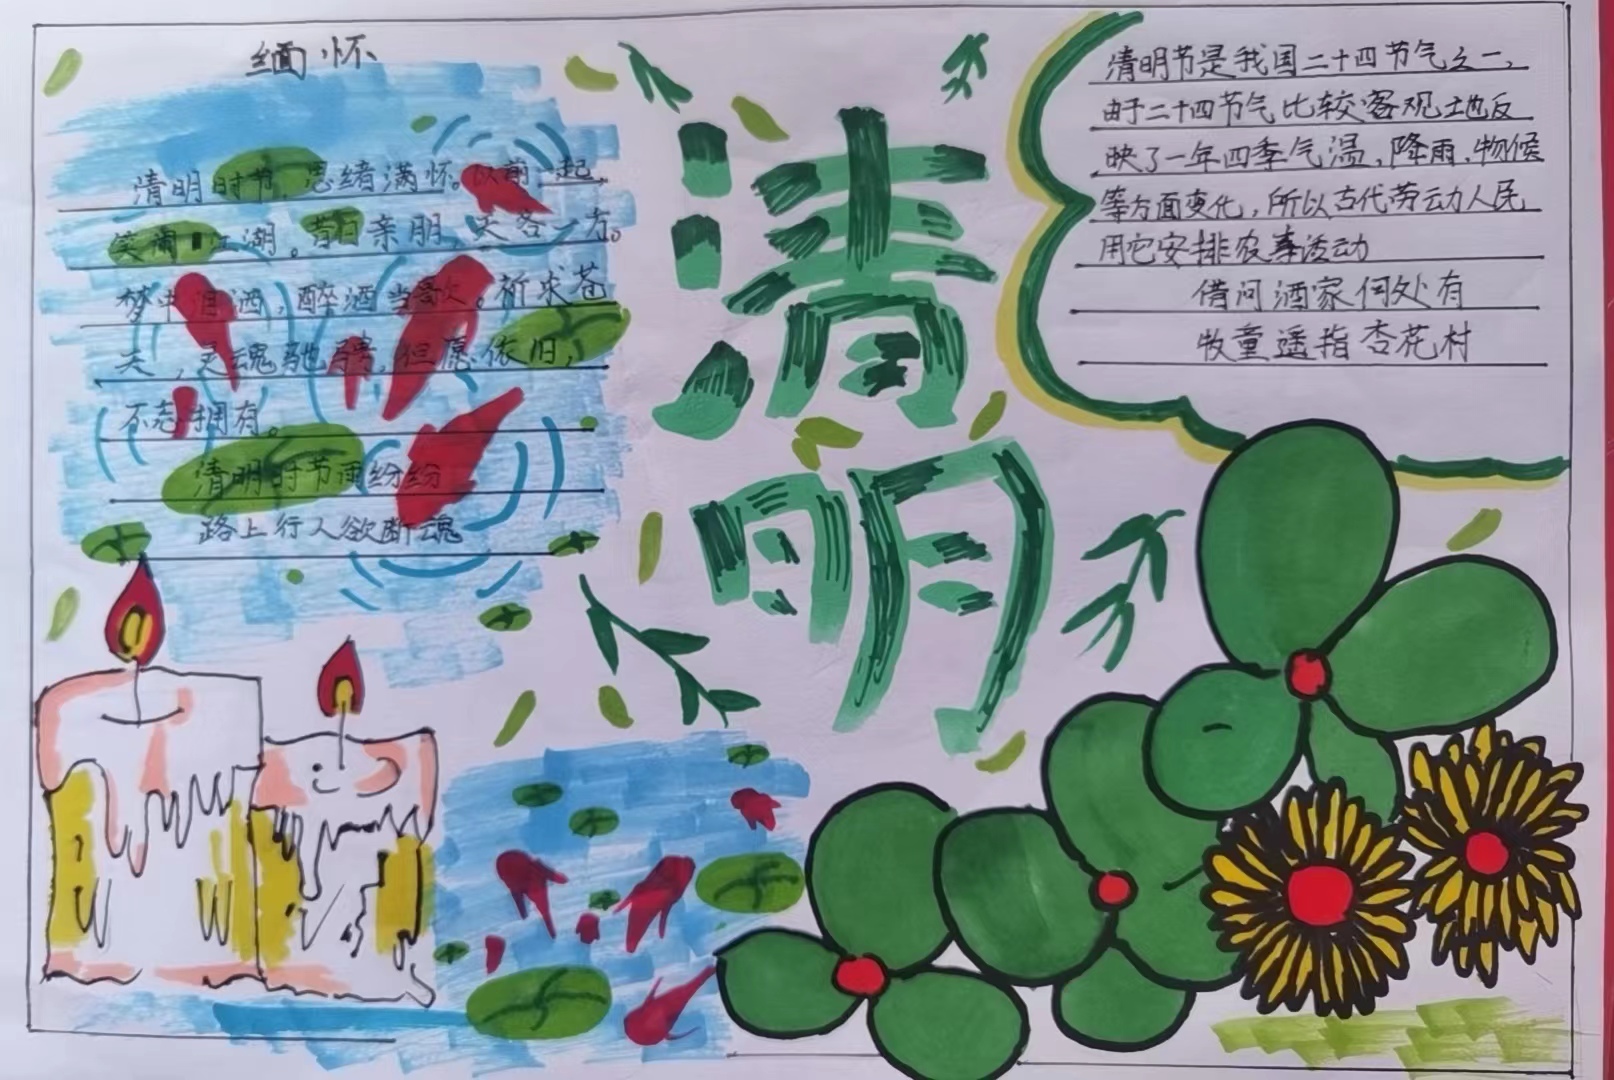 缅怀
清明时节，思绪满怀。以前一起，
笑闹江湖。昔日亲朋，天各一方。
梦中泪洒，醉酒当歌。祈求苍
天，灵魂驰骋，但愿依旧，
不忘拥有。
清明时节雨纷纷
路上行人欲断魂
清明
清明节是我国二十四节气之一，
由于二十四节气比较客观地反
映了一年四季气温，降雨，物候
等方面变化，所以古代劳动人民
用它安排农事活动
借问酒家何处有
牧童遥指杏花村